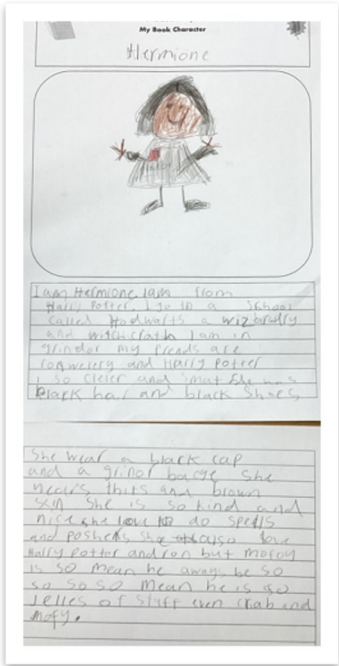 My Book Character
Hermione
I am Hermione. I am from
Harry Potter. I go to a School
called Hodwarts a wizardry
and witchcrath I am in
grindor my freads are
ronwelery and Harry Potter
I so cleler and smat She has
black hair and black shoes
She wear a black cap
and a grinor badge She
wears thits and brown
skin She is so kind and
nice she love to do spells
and poshens She also love
Harry Potter and ron but mofoy
is so mean he aways be so
so so so mean he is so
Jelles of stuff even crab and
mofy.